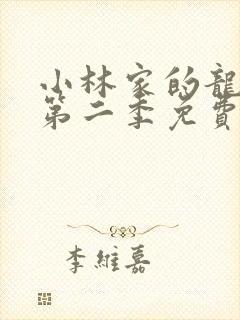 小林家的龍
第二季免費
李維嘉